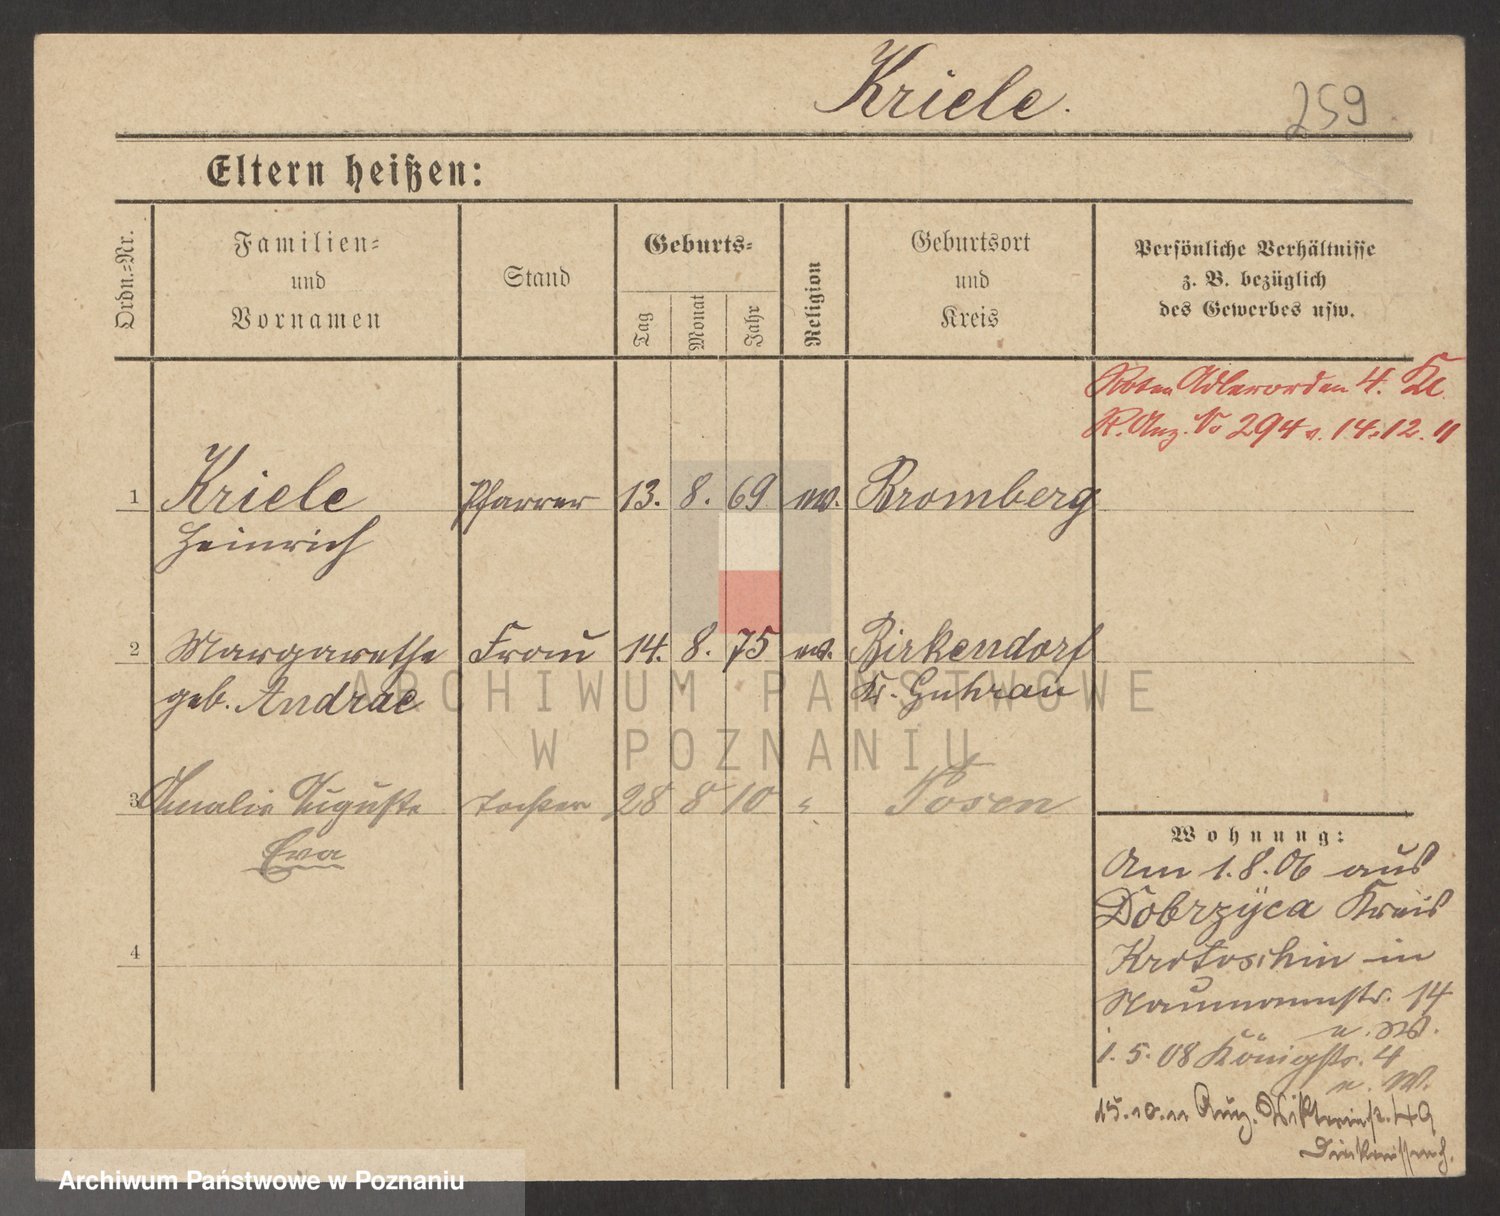 Kriele.
259
Eltern heißen:
Ordn.=Nr.
Familien=
und
Vornamen
Stand
Geburts=
Tag
Monat
Jahr
Religion
Geburtsort
und
Kreis
Persönliche Verhältnisse
z. B. bezüglich
des Gewerbes usw.
Roten Adlerorden 4. Kl.
R. Anz. No 294 v. 14.12.11
1 Kriele Pfarrer 13. 8. 69 ev. Bromberg
Heinrich
2 Margarethe Frau 14. 8. 75 ev. Birkendorf
geb. Andrae Kr. Guhrau
3 Amalie Auguste Tochter 28 8 10 " Posen
Eva
4
Wohnung:
Am 1.8.06 aus
Dobrzÿca Kreis
Krotoschin in
Naumannstr. 14
n. W.
1.5.08 Königstr. 4
n. W.
15.10.11 Aug. Viktoriastr. 49
ARCHIWUM PAŃSTWOWE
W POZNANIU
Archiwum Państwowe w Poznaniu